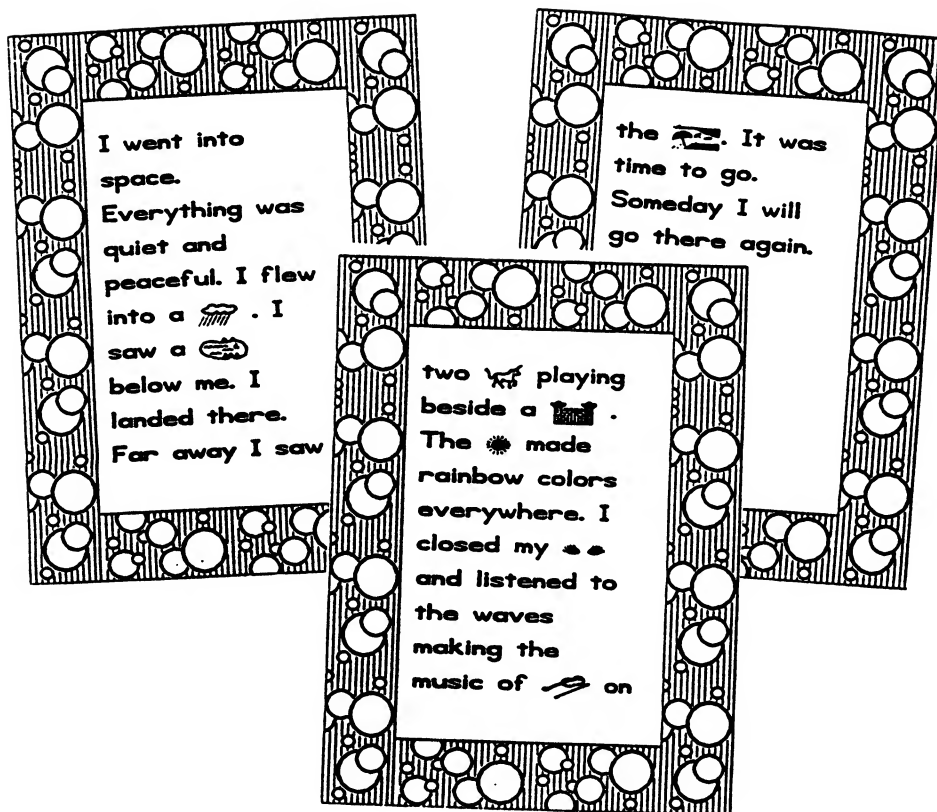 I went into
space.
Everything was
quiet and
peaceful. I flew
into a . I
saw a
below me. I
landed there.
Far away I saw
two playing
beside a .
The made
rainbow colors
everywhere. I
closed my
and listened to
the waves
making the
music of on
the . It was
time to go.
Someday I will
go there again.